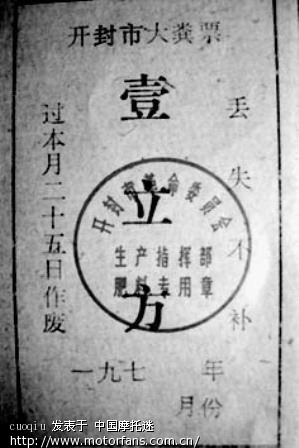 开封市大粪票
壹立方
丢失不补
过本月二十五日作废
开封市革命委员会
生产指挥部
肥料专用章
一九七 年
月份
cuoqiu 发表于 中国摩托迷
http://www.motorfans.com.cn